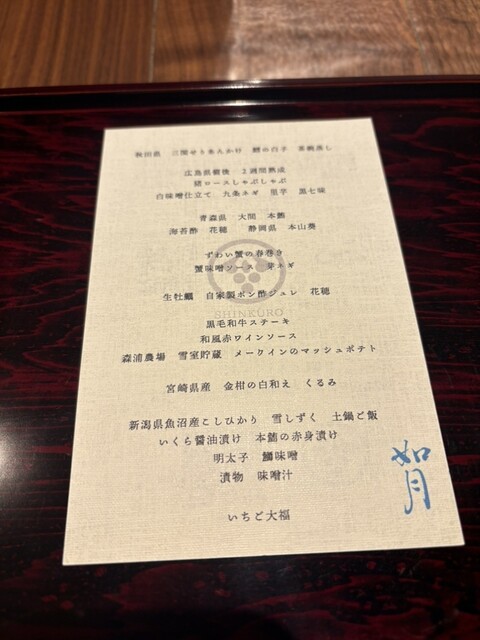 秋田県 三関せりあんかけ 鱈の白子 茶碗蒸し
広島県備後 2週間熟成
猪ロースしゃぶしゃぶ
白味噌仕立て 九条ネギ 里芋 黒七味
青森県 大間 本鮪
海苔酢 花穂 静岡県 本山葵
ずわい蟹の春巻き
蟹味噌ソース 芽ネギ
生牡蠣 自家製ポン酢ジュレ 花穂
SHINKURO
黒毛和牛ステーキ
和風赤ワインソース
森浦農場 雪室貯蔵 メークインのマッシュポテト
宮崎県産 金柑の白和え くるみ
新潟県魚沼産こしひかり 雪しずく 土鍋ご飯
いくら醤油漬け 本鮪の赤身漬け
明太子 鰤味噌
漬物 味噌汁
いちご大福
如月